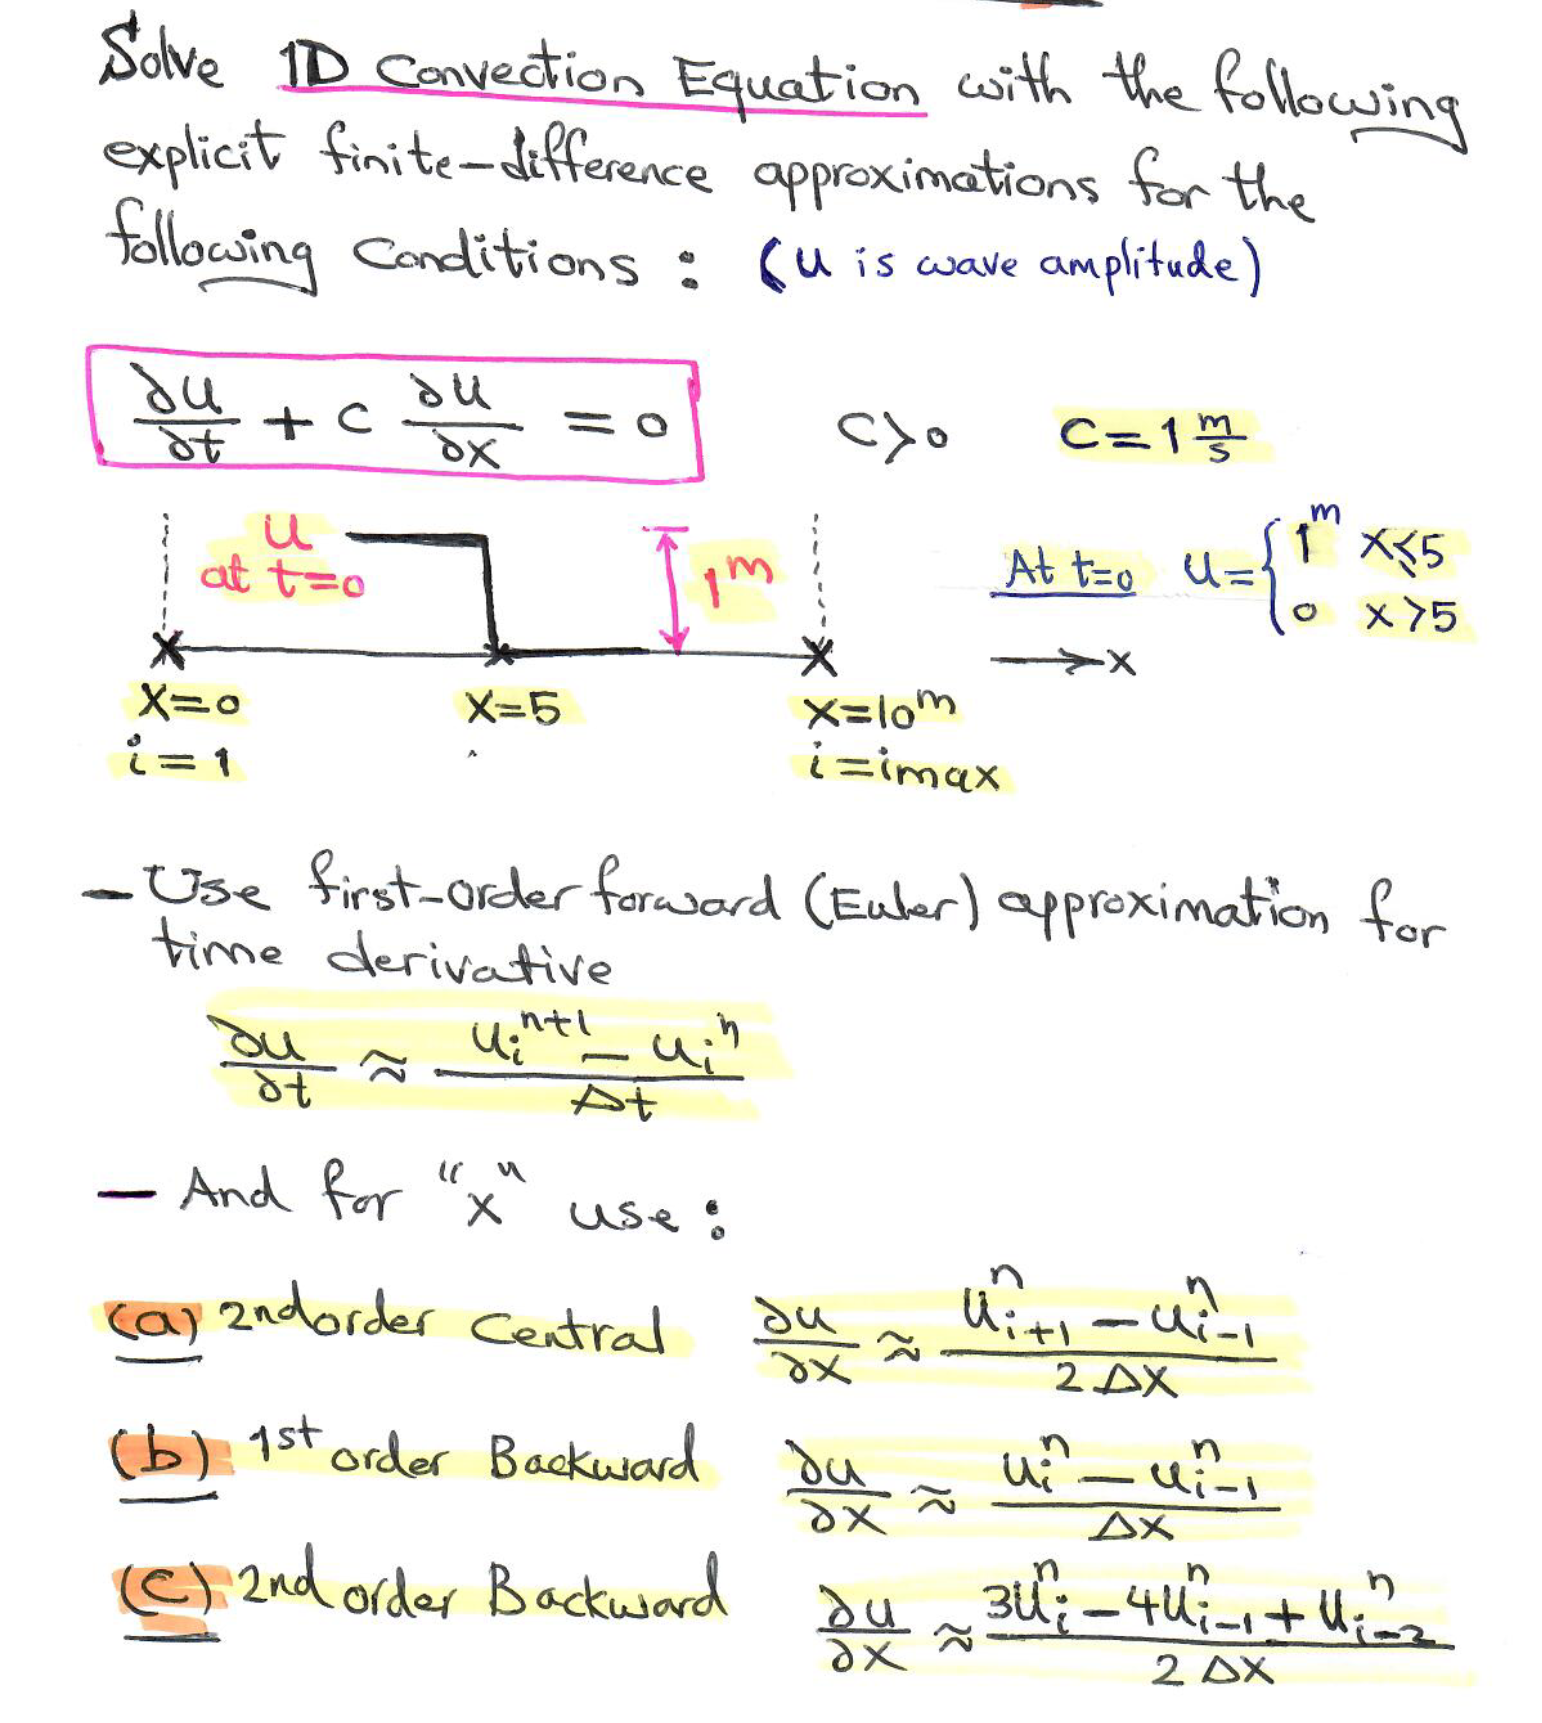 Solve 1D Convection Equation with the following
explicit finite-difference approximations for the
following Conditions : (u is wave amplitude)
∂u/∂t + c ∂u/∂x = 0    c>0    c=1 m/s
u
at t=0
1m
At t=0  u={ 1m x≤5
0 x>5
→x
x=0  x=5  x=10m
i=1  i=imax
- Use first-order forward (Euler) approximation for
time derivative
∂u/∂t ≈ (uᵢⁿ⁺¹ - uᵢⁿ)/Δt
- And for "x" use :
(a) 2nd order Central  ∂u/∂x ≈ (uⁿᵢ₊₁ - uⁿᵢ₋₁)/2Δx
(b) 1st order Backward  ∂u/∂x ≈ (uᵢⁿ - uⁿᵢ₋₁)/Δx
(c) 2nd order Backward  ∂u/∂x ≈ (3uⁿᵢ - 4uⁿᵢ₋₁ + uⁿᵢ₋₂)/2Δx